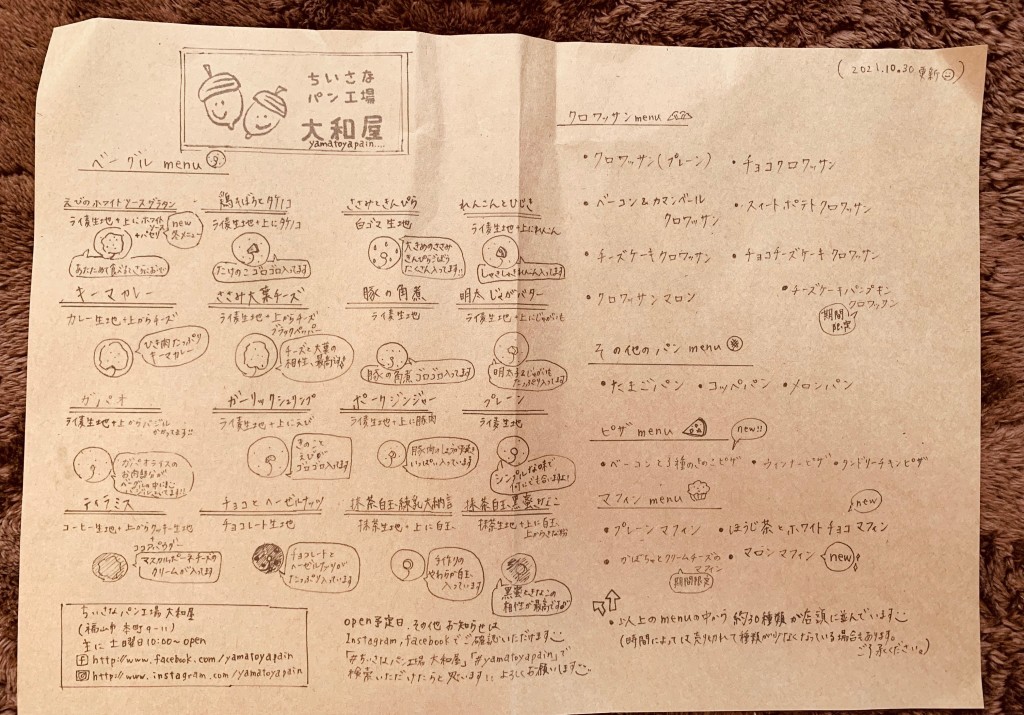 (2021.10.30 更新)
ちいさな
パン工場
大和屋
yamatoyapain....
ベーグル menu
えびのホワイトソースグラタン
ライ麦生地+上にホワイト
ソース
+パセリ
new
冬メニュー
あたためて食べるとさらにおいしいです
鶏そぼろとタケノコ
ライ麦生地+上にタケノコ
たけのこゴロゴロ入ってます
ささみときんぴら
白ゴマ生地
大きめのささみ
きんぴらごぼう
たくさん入ってます!!
れんこんとひじき
ライ麦生地+上にれんこん
しゃきしゃきれんこん入ってます
キーマカレー
カレー生地+上からチーズ
ひき肉たっぷり
キーマカレー
ささみ大葉チーズ
ライ麦生地+上からチーズ
ブラックペッパー
チーズと大葉の
相性、最高です!!
豚の角煮
ライ麦生地
豚の角煮ゴロゴロ入ってます
明太じゃがバター
ライ麦生地+上にじゃがいも
明太子&じゃがいも
たっぷり入ってます
ガパオ
ライ麦生地+上からバジル
かかってます!!
ガパオライスの
お肉部分が
ベーグルの中に
ガーリックシュリンプ
ライ麦生地+上にえび
きのこと
えびが
ゴロゴロ入ってます
ポークジンジャー
ライ麦生地+上に豚肉
豚肉のしょうが焼き
いっぱい入っています
プレーン
ライ麦生地
シンプルな味で
何にでも合いますよ!
ティラミス
コーヒー生地+上からクッキー生地
ココアパウダー
マスカルポーネチーズの
クリームが入ってます
チョコとヘーゼルナッツ
チョコレート生地
チョコレートと
ヘーゼルナッツが
たっぷり入っています
抹茶白玉練乳大納言
抹茶生地+上に白玉
手作りの
やわらか白玉
入っています
抹茶白玉黒蜜きなこ
抹茶生地+上に白玉
上からきな粉
黒蜜ときなこの
相性が最高ですよ
ちいさなパン工場 大和屋
(福山市 本町 9-11)
主に 土曜日10:00〜open
http://www.facebook.com/yamatoyapain
http://www.instagram.com/yamatoyapain
open予定日、その他 お知らせは
Instagram,facebookでご確認いただけます
「#ちいさなパン工場 大和屋」「#yamatoyapain」で
検索いただけたらと思います!! よろしくお願いします
クロワッサン menu
・クロワッサン(プレーン)
・チョコクロワッサン
・ベーコン&カマンベール
クロワッサン
・スイートポテトクロワッサン
・チーズケーキクロワッサン
・チョコチーズケーキクロワッサン
・クロワッサンマロン
・チーズケーキパンプキン
クロワッサン
期間
限定
その他のパン menu
・たまごパン ・コッペパン ・メロンパン
ピザ menu
new!!
・ベーコンと3種のきのこピザ ・ウィンナーピザ ・タンドリーチキンピザ
マフィン menu
new
・プレーンマフィン ・ほうじ茶とホワイトチョコマフィン
・かぼちゃとクリームチーズの
マフィン
期間限定
・マロンマフィン
new!
・以上のmenuの中から 約30種類が店頭に並んでいます
(時間によっては売り切れて種類が少なくなっている場合もあります。
ご了承ください。)